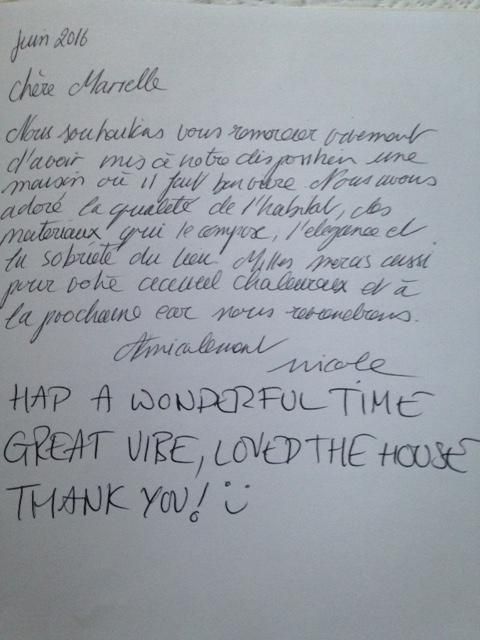 Juin 2016
Chère Marielle
Nous souhaitions vous remercier vivement
d'avoir mis à notre disposition une
maison où il fait bon vivre. Nous avons
adoré la qualité de l'habitat, des
materiaux qui le compose, l'elegance et
la sobriété du lieu. Milles mercis aussi
pour votre acceueil chaleureux et à
la prochaine car nous reviendrons.
Amicalement
Nicole
HAP A WONDERFUL TIME
GREAT VIBE, LOVED THE HOUSE
THANK YOU! :)